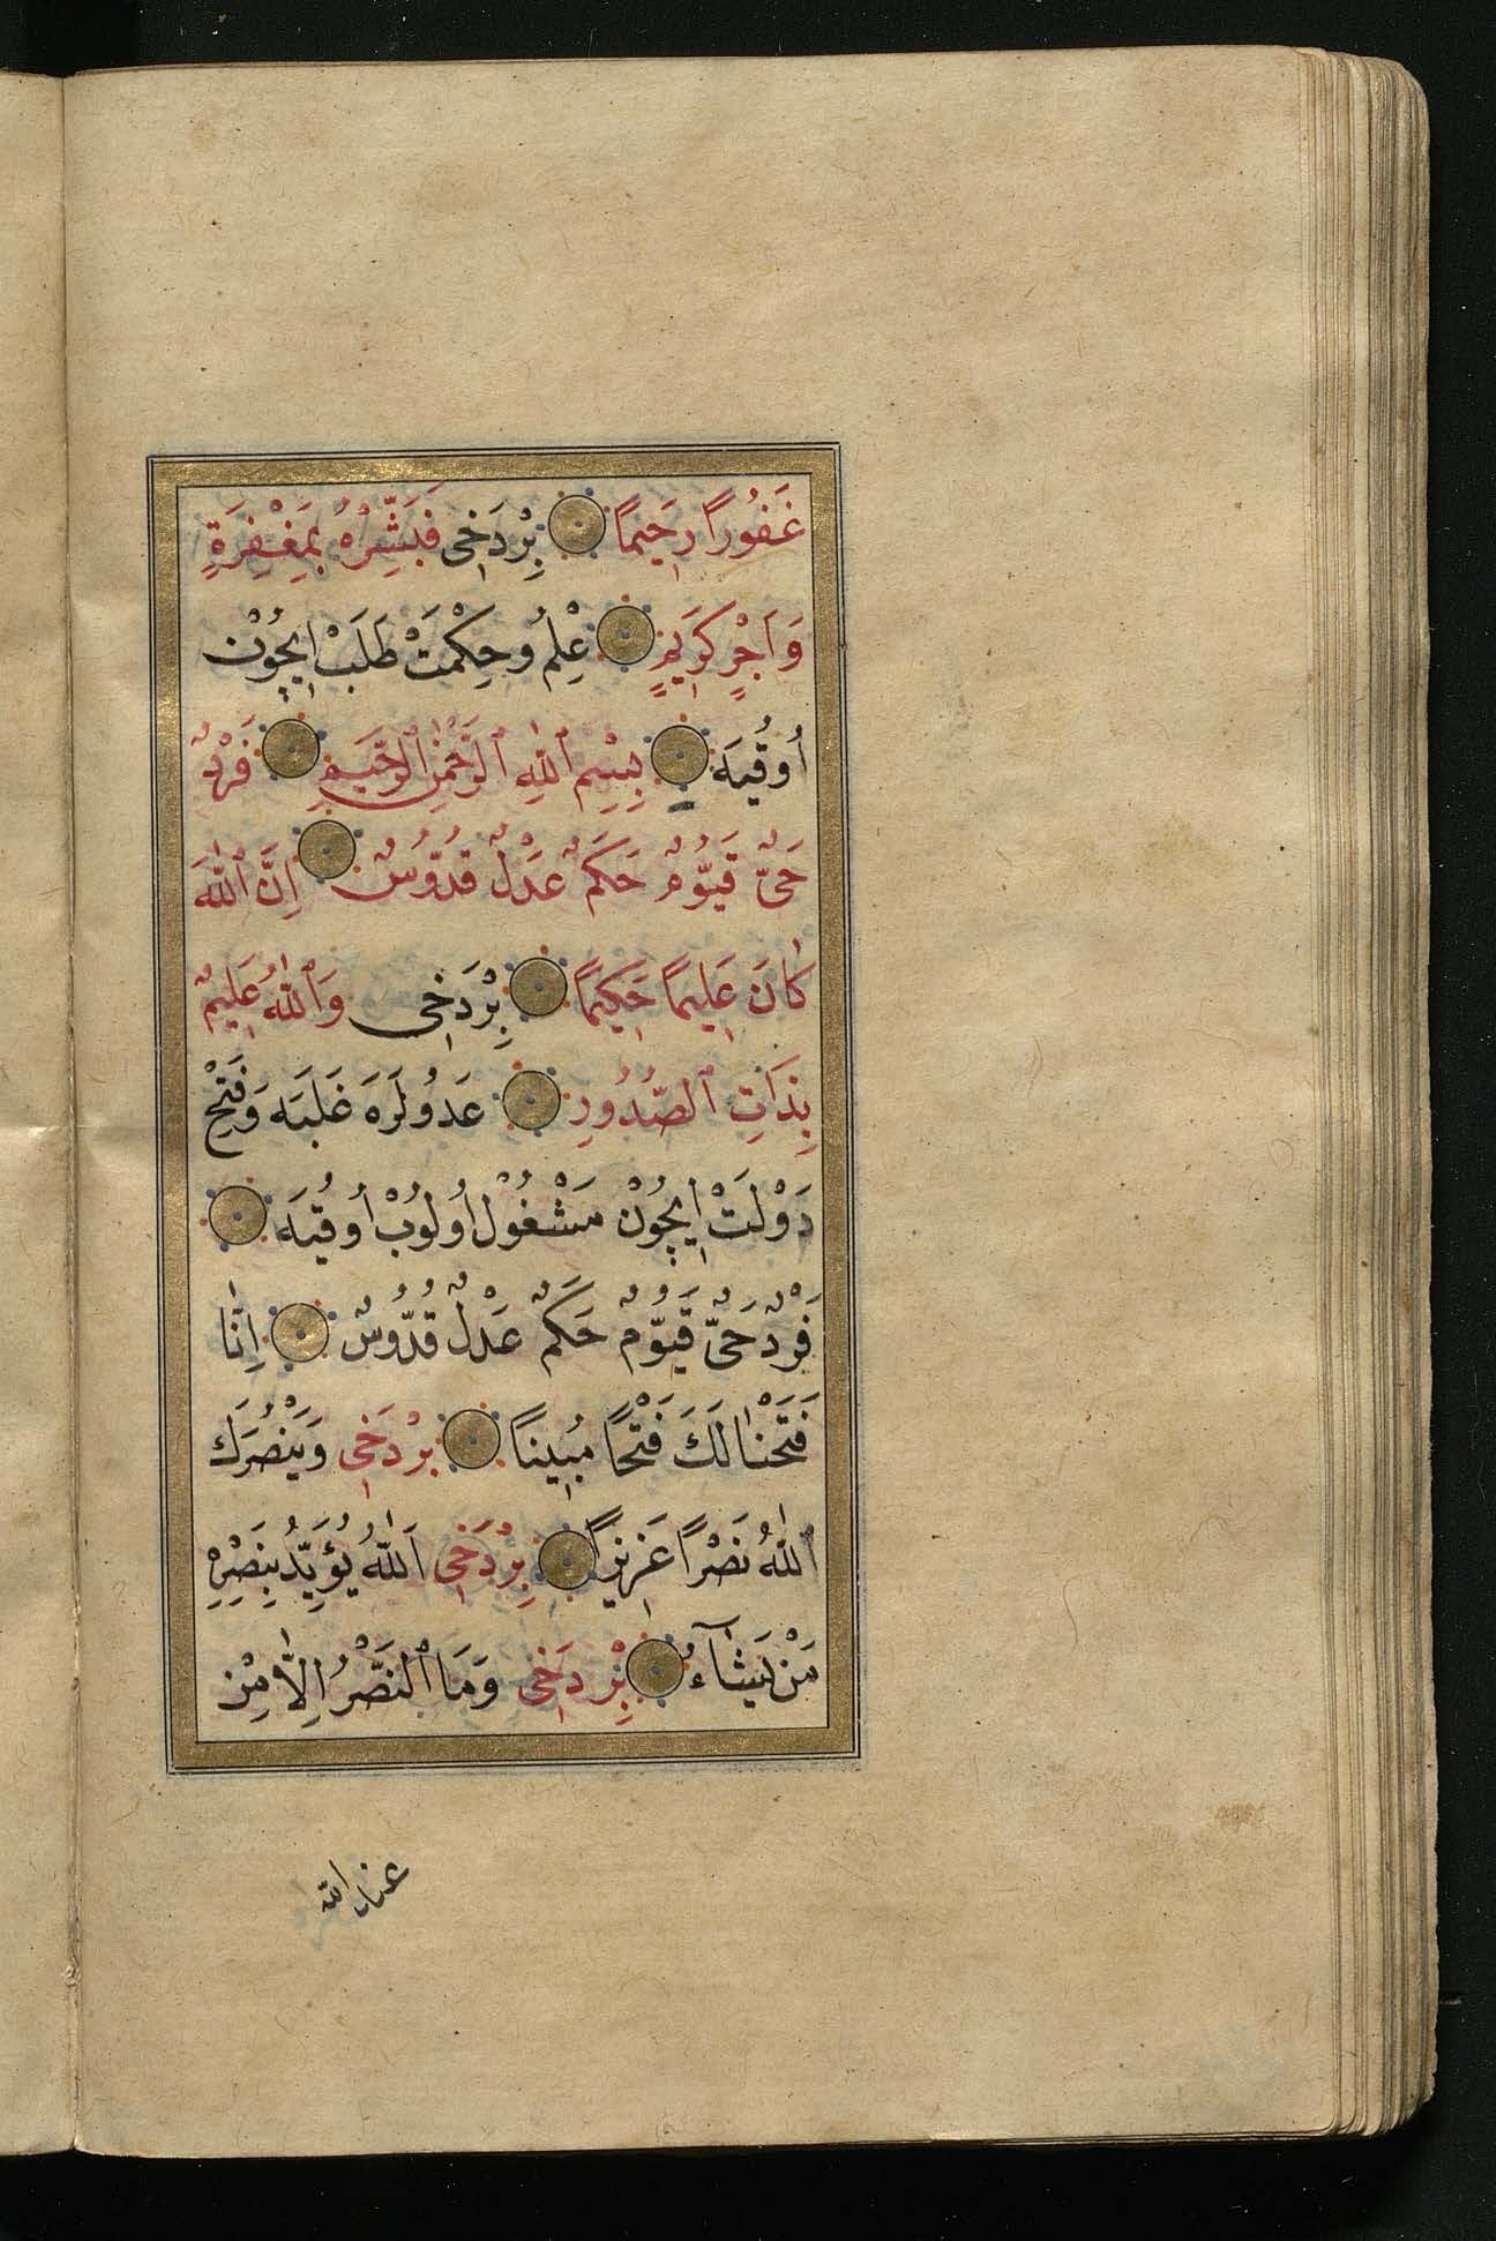 غَفُوراً رَحِيماً بِرْدَخِى فَبَشِّرْهُ بِمَغْفِرَةٍ
وَاَجْرٍ كَرِيمٍ عِلْمُ وحِكْمَتْ طَلَبْ اِيچُوْن
أُوقُيَه بِسْمِ ٱللّٰهِ ٱلرَّحْمٰنِ ٱلرَّحِيمِ فَرْدٌ
حَىٌّ قَيُّوْمٌ حَكَمٌ عَدْلٌ قُدُّوسٌ اِنَّ ٱللّٰهَ
كَانَ عَلِيماً حَكِيماً بِرْدَخِى وَٱللّٰهُ عَلِيمٌ
بِذَاتِ ٱلصُّدُورِ عَدُولَرَه غَلَبَه وَفَتْحِ
دَوْلَتْ اِيچُوْنْ مَشْغُوْلْ اُولُوبْ اُوقُيَه
فَرْدٌ حَىٌّ قَيُّوْمٌ حَكَمٌ عَدْلٌ قُدُّوسٌ اِنَّا
فَتَحْنَا لَكَ فَتْحاً مُبِيناً بِرْدَخِى وَيَنْصُرَكَ
ٱللّٰهُ نَصْراً عَزِيزاً بِرْدَخِى اَللّٰهُ يُؤَيِّدُ بِنَصْرِهِ
مَنْ يَشَآءُ بِرْدَخِى وَمَا ٱلنَّصْرُ اِلَّا مِنْ
عند الله